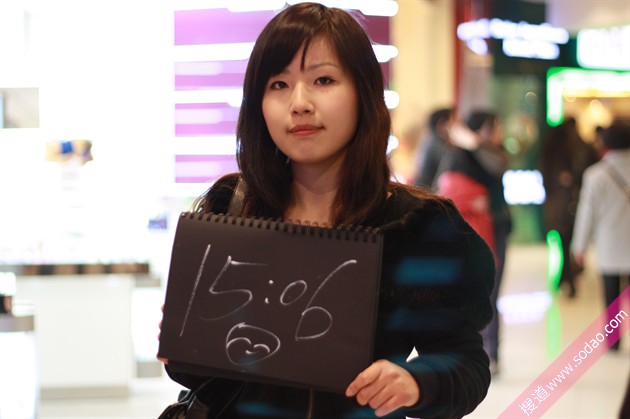 15:06
搜道 www.sodao.com